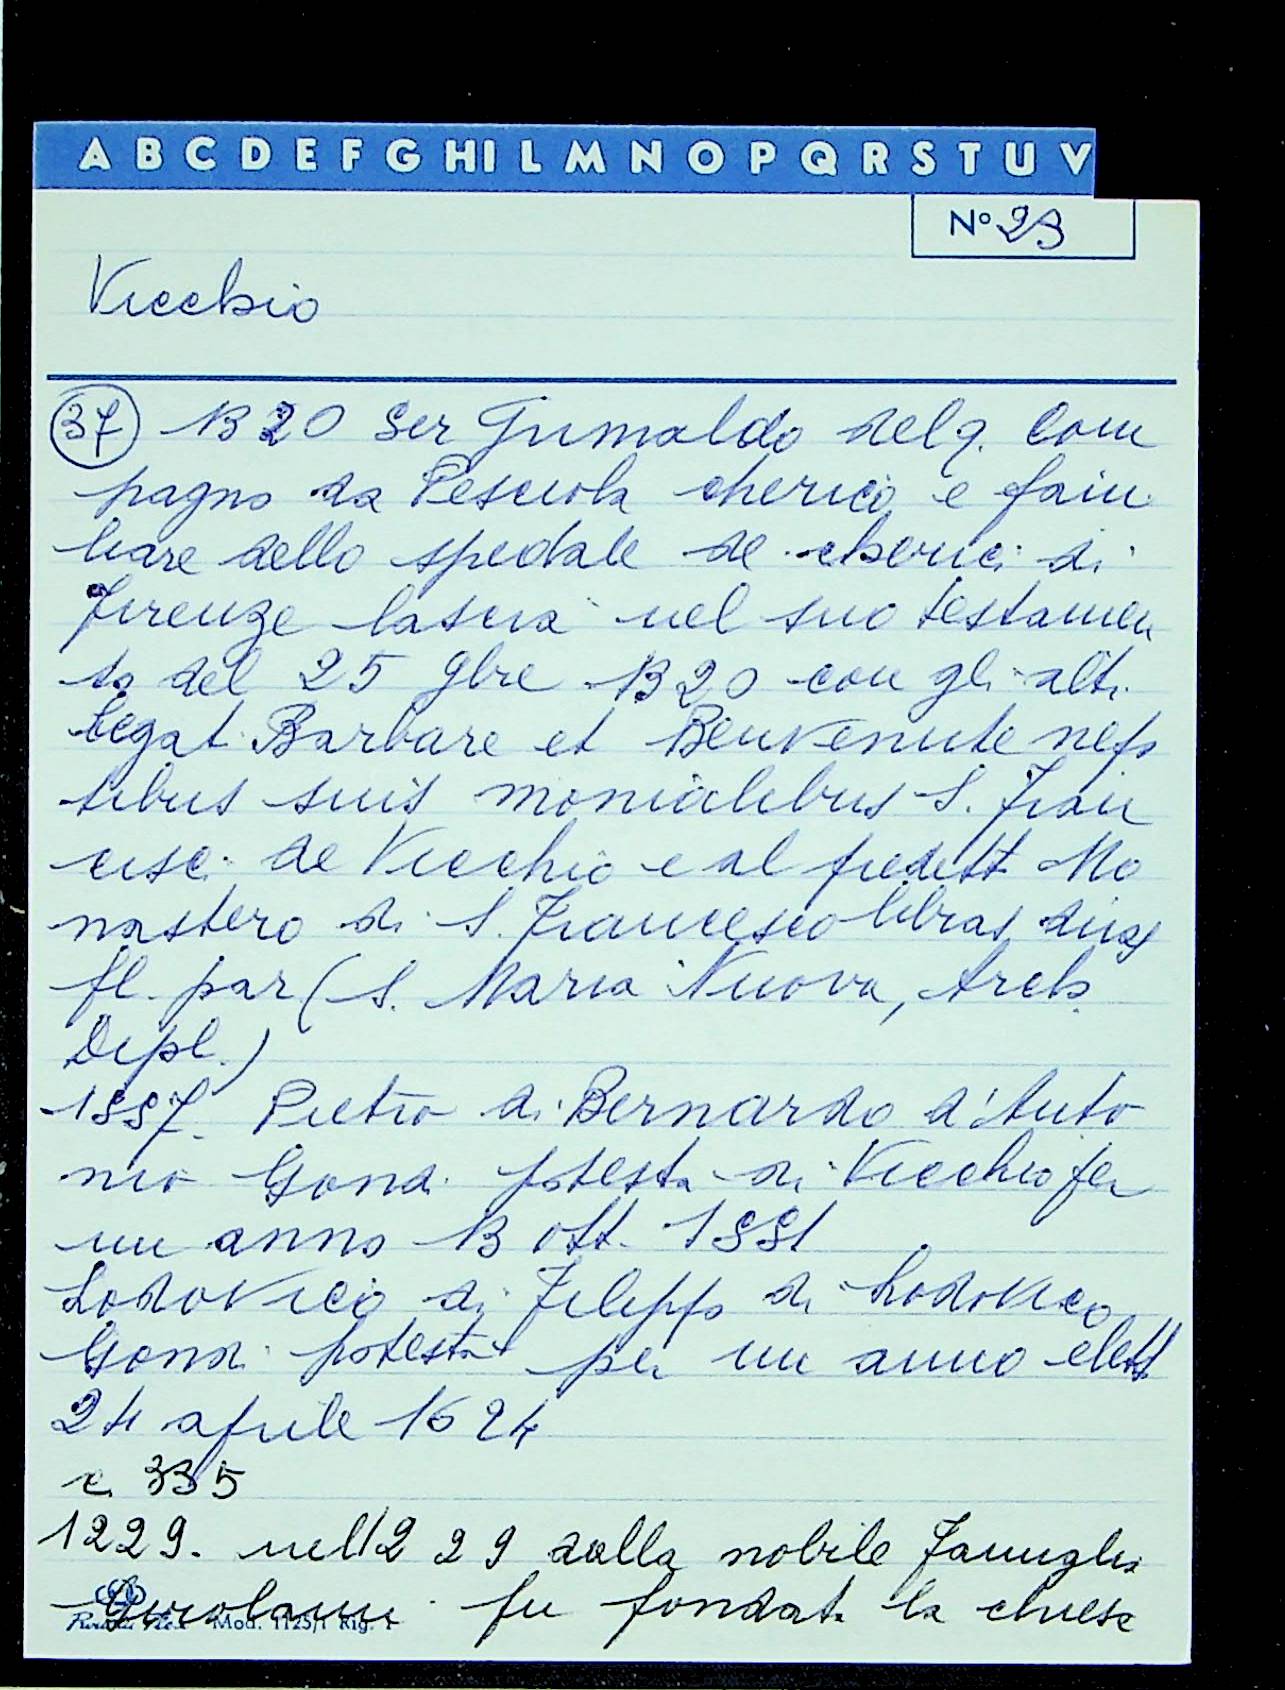 A B C D E F G HI L M N O P Q R S T U V
Nº 23
Vicchio
37 1320 Ser Grimaldo del q. Com
pagno da Pesciola cherico e fami
liare dello spedale de cherici di
Firenze lascia nel suo testamen
to del 25 9bre 1320 con gli altri
legati Barbare et Benvenute nepo
tibus suis monialibus S. Fran
cisci de Vicchio e al predetto Mo
nastero di S. Francesco libras duas
fl. par (S. Maria Nuova, Arch.
Dipl.)
Pietro di Bernardo d'Anto
nio Gondi potestà di Vicchio per
un anno 13 ott.
Lodovico di Filippo di Lodovico
Gondi potestà per un anno elett.
24 aprile 1624
c. 335
1229. nell 1229 dalla nobile Famiglia
Girolami fu fondata la chiesa
Mod. 1125/1 Rig.